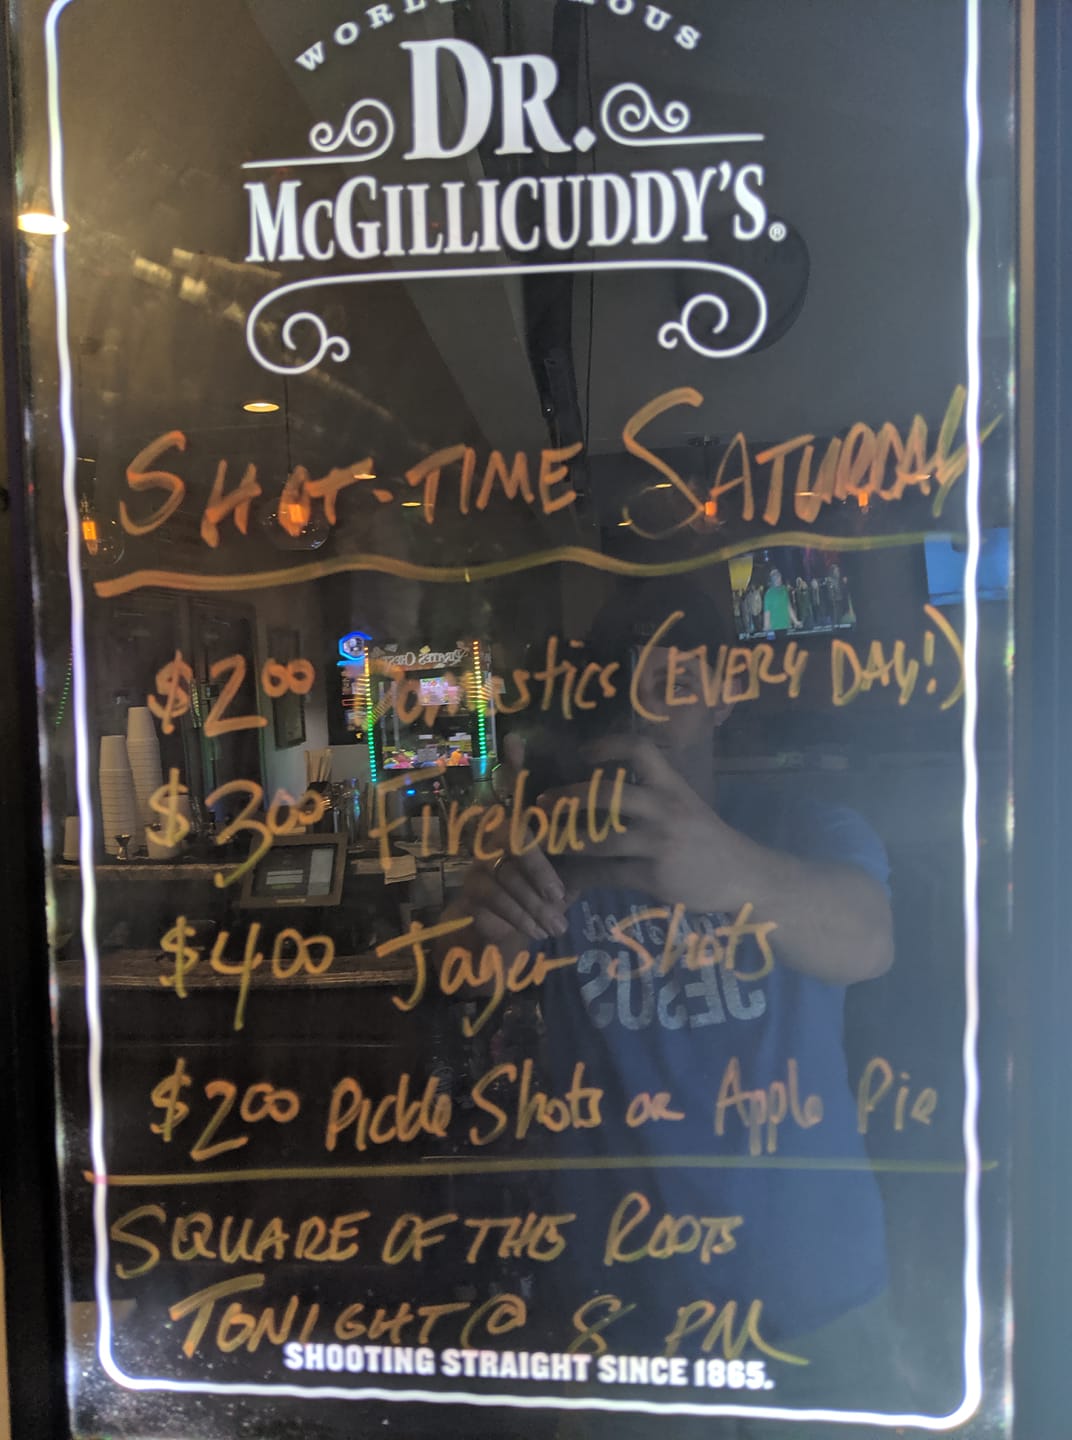 WORLD FAMOUS
DR.
McGILLICUDDY'S.®
SHOT-TIME SATURDAY
$2.00 Domestics (EVERY DAY!)
$3.00 Fireball
$4.00 Jager Shots
$2.00 Pickle Shots or Apple Pie
SQUARE OF THE ROOTS
TONIGHT @ 8 PM
SHOOTING STRAIGHT SINCE 1865.
PIRATES CHEST
JESUS